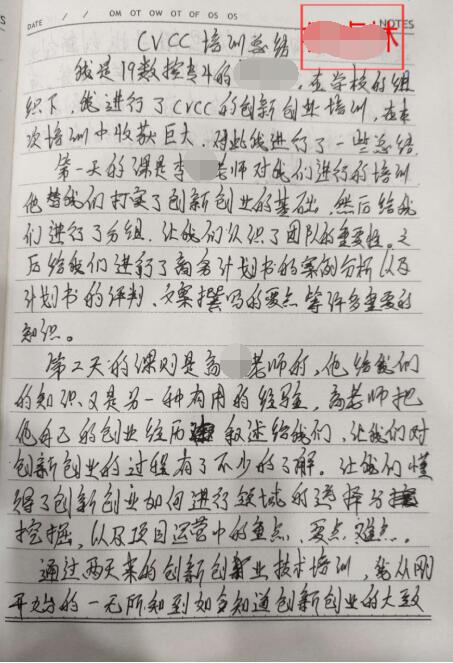 DATE / / OM OT OW OT OF OS OS NOTES
CVCC 培训总结
我是19数控专升的 , 在学校的组
织下,我进行了CVCC的创新创业培训,在本
次培训中收获巨大,对此我进行了一些总结
第一天的课是李 老师对我们进行的培训
他替我们打实了创新创业的基础,然后给我
们进行了分组,让我们认识了团队的重要性。之
后给我们进行了商务计划书的案例分析以及
计划书的评判、文案撰写的要点等许多重要的
知识。
第二天的课则是高 老师的,他给我们
的知识又是另一种有用的经验,高老师把
他自己的创业经历 叙述给我们,让我们对
创新创业的过程有了不少的了解。让我们懂
得了创新创业如何进行领域的选择与
挖掘,以及项目运营中的重点、要点、难点。
通过两天来的创新创业技术培训,我从刚
开始的一无所知到如今知道创新创业的大致